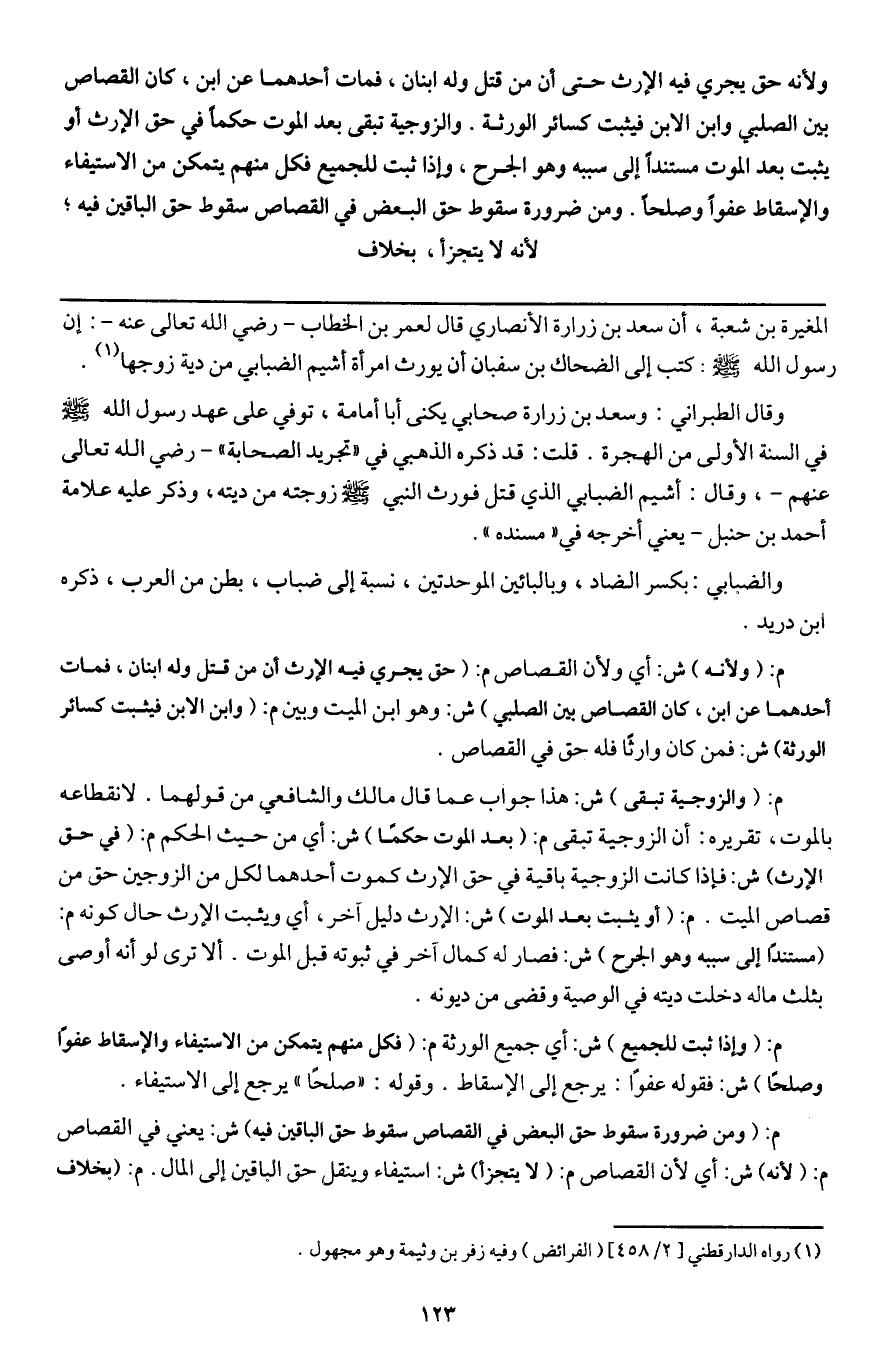 ولأنه حق يجري فيه الإرث حـتـى أن من قتل وله ابنان ، فمات أحدهمـا عن ابن ، كان القصاص
بين الصلبي وابن الابن فيثبت كسائر الورثـة . والزوجية تبقى بعد الموت حكماً في حق الإرث أو
يثبت بعد الموت مستنداً إلى سببه وهو الجـرح ، وإذا ثبت للجميع فكل منهم يتمكن من الاستيفاء
والإسقاط عفواً وصلحاً . ومن ضرورة سقوط حق البـعض في القصاص سقوط حق الباقين فيه ؛
لأنه لا يتجزأ ، بخلاف
المغيرة بن شعبة ، أن سعد بن زرارة الأنصاري قال لعمر بن الخطاب – رضي الله تعالى عنه – : إن
رسول الله ﷺ : كتب إلى الضحاك بن سفبان أن يورث امرأة أشيم الضبابي من دية زوجها(١) .
وقال الطبراني : وسعـد بن زرارة صحابي يكنى أبا أمامة ، توفي على عهد رسول الله ﷺ
في السنة الأولى من الهجرة . قلت : قد ذكره الذهبي في «تجريد الصحابة» – رضي الله تعالى
عنهم – ، وقال : أشيم الضبابي الذي قتل فورث النبي ﷺ زوجته من ديته، وذكر عليه علامة
أحمد بن حنبل – يعني أخرجه في« مسنده » .
والضبابي : بكسر الضاد ، وبالبائين الموحدتين ، نسبة إلى ضباب ، بطن من العرب ، ذكره
ابن دريد .
م: ( ولأنـه ) ش: أي ولأن القـصـاص م: ( حق يجـري فيـه الإرث أن من قـتل وله ابنان ، فمـات
أحدهمـا عن ابن ، كان القصـاص بين الصلبي ) ش: وهو ابـن الميت وبين م: ( وابن الابن فيثـبت كسائر
الورثة) ش: فمن كان وارثًا فله حق في القصاص .
م: ( والزوجـية تبـقى ) ش: هذا جواب عـمـا قال مـالك والشافعي من قـولهـما . لانقطاعـه
بالموت، تقريره : أن الزوجـية تبقى م: ( بعـد الموت حكمًـا ) ش: أي من حـيث الحكم م: ( في حـق
الإرث) ش: فـإذا كانت الزوجـية باقـية في حق الإرث كـموت أحـدهمـا لكـل من الزوجين حق من
قصاص الميت . م: ( أو يثـبت بعـد الموت ) ش: الإرث دليل آخر، أي ويثـبت الإرث حال كـونه م:
(مستندًا إلى سببه وهو الجرح ) ش: فصار له كمال آخر في ثبوته قبل الموت . ألا ترى لو أنه أوصى
بثلث ماله دخلت ديته في الوصية وقضى من ديونه .
م: ( وإذا ثبت للجميع ) ش: أي جميع الورثة م: ( فكل منهم يتمكن من الاستيفاء والإسقاط عفوًا
وصلحًا ) ش: فقوله عفوًا : يرجع إلى الإسقاط . وقوله : «صلحًا » يرجع إلى الاستيفاء .
م: ( ومن ضرورة سقوط حق البعض في القصاص سقوط حق الباقين فيه) ش: يعني في القصاص
م: ( لأنه) ش: أي لأن القصاص م: ( لا يتجزأ) ش: استيفاء وينقل حق الباقين إلى المال . م: (بخلاف
(١) رواه الدارقطني [ ٢/ ٤٥٨] ( الفرائض ) وفيه زفر بن وثيمة وهو مجهول .
١٢٣